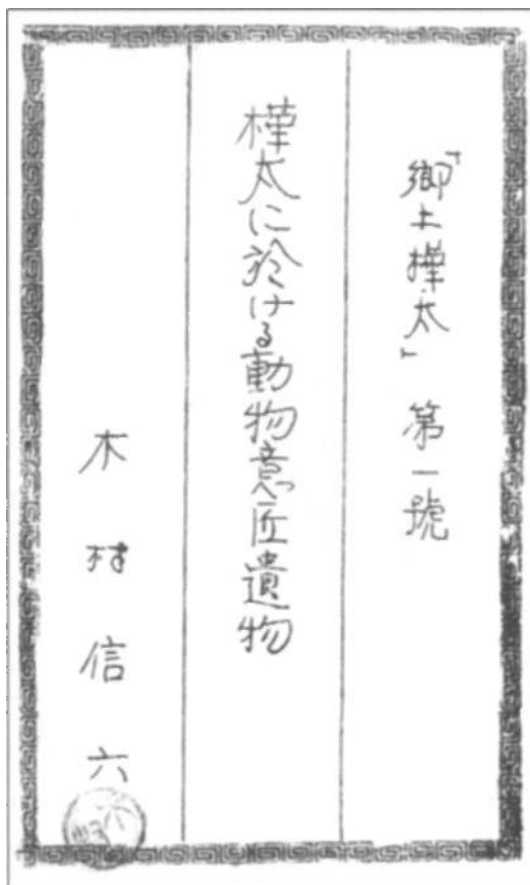 「郷土樺太」 第一號
樺太に於ける動物意匠遺物
木村信六